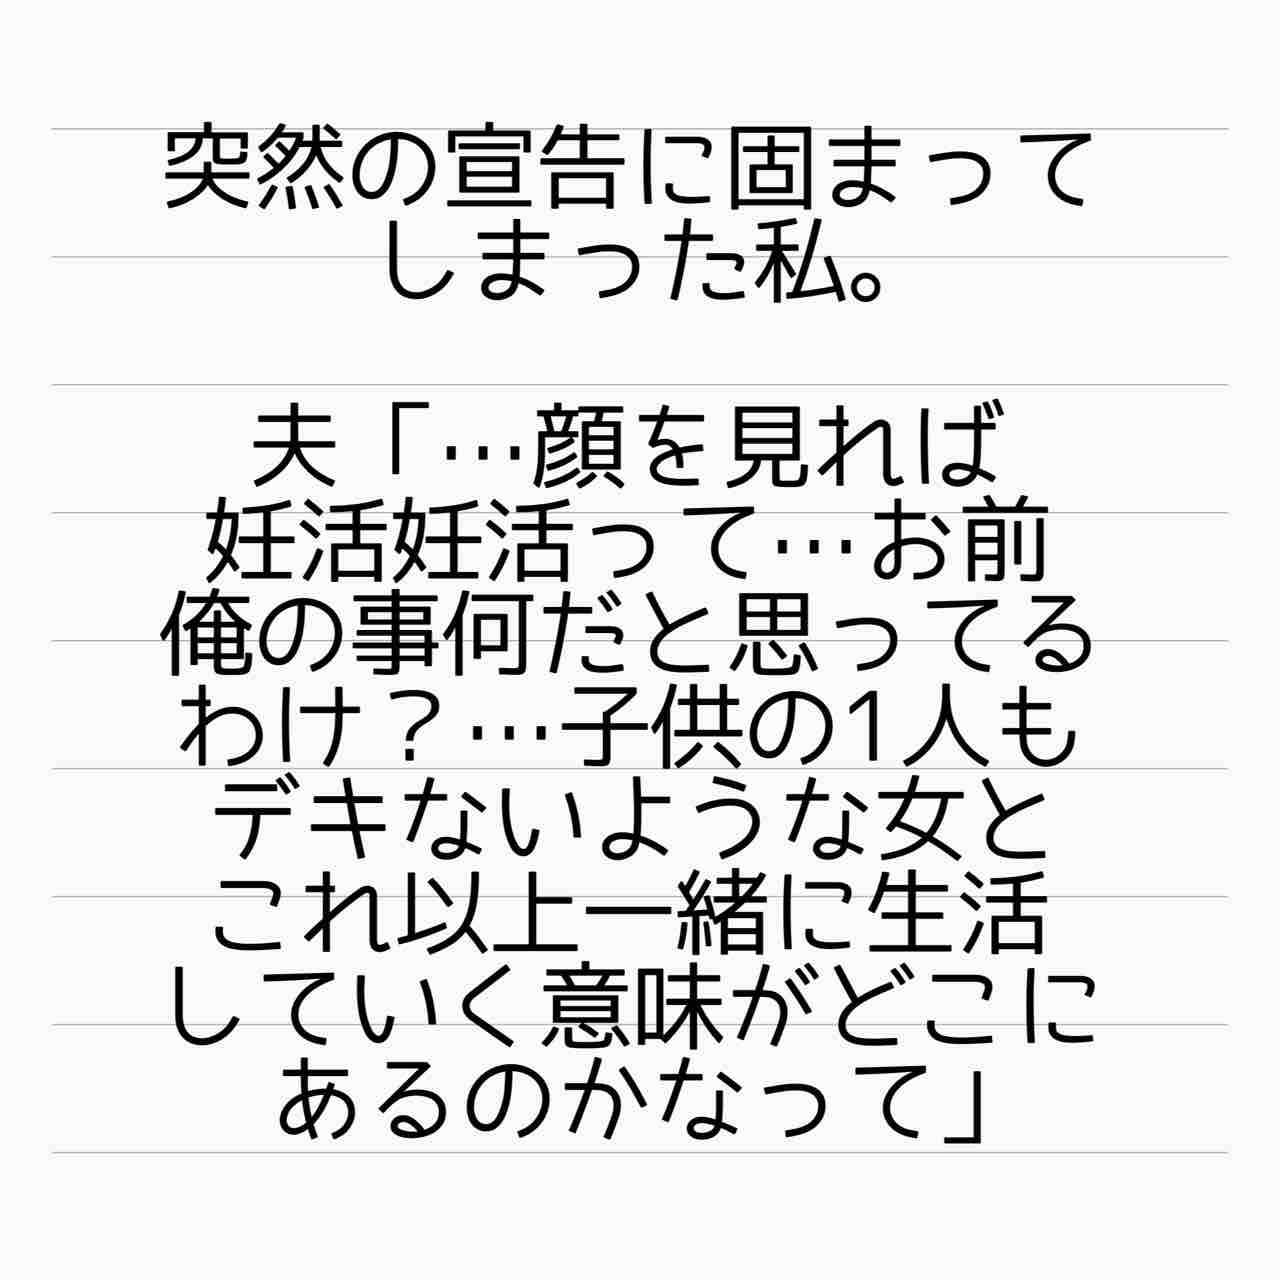 突然の宣告に固まって
しまった私。
夫「…顔を見れば
妊活妊活って…お前
俺の事何だと思ってる
わけ？…子供の1人も
デキないような女と
これ以上一緒に生活
していく意味がどこに
あるのかなって」